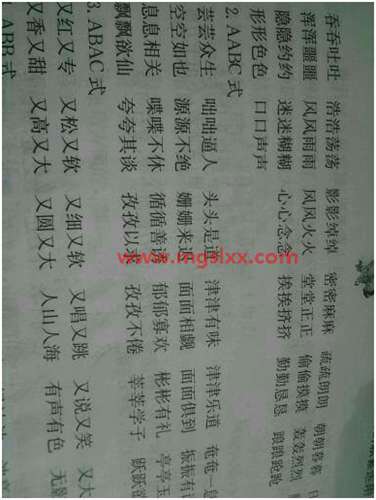 吞吞吐吐 浩浩荡荡 影影绰绰 密密麻麻 疏疏朗朗 朝朝暮暮
浑浑噩噩 风风雨雨 风风火火 堂堂正正 偷偷摸摸 轰轰烈烈
隐隐约约 迷迷糊糊 心心念念 挨挨挤挤 勤勤恳恳 踉踉跄跄
形形色色 口口声声
2. AABC 式
芸芸众生 咄咄逼人 头头是道 津津有味 津津乐道 奄奄一息
空空如也 源源不绝 姗姗来迟 面面相觑 面面俱到 振振有词
息息相关 喋喋不休 循循善诱 郁郁寡欢 彬彬有礼 亭亭玉
飘飘欲仙 夸夸其谈 孜孜以求 孜孜不倦 莘莘学子 跃跃欲
3. ABAC 式
又红又专 又松又软 又细又软 又唱又跳 又说又笑 又大
又香又甜 又高又大 又圆又大 人山人海 有声有色 无
ABB 式
www.mgslxx.com